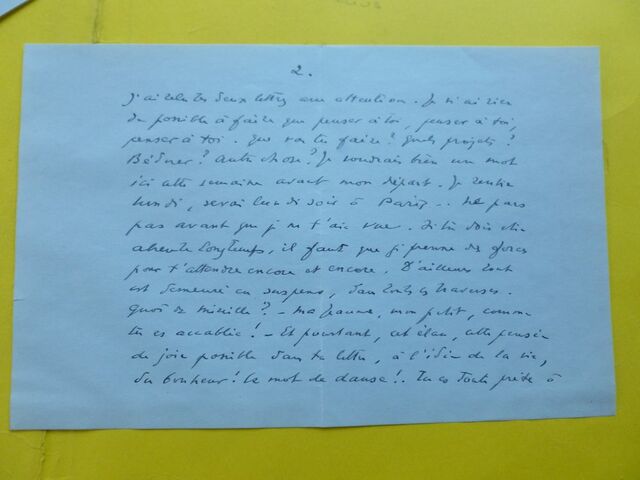 2.
J'ai relu tes deux lettres avec attention. Je n'ai rien
de possible à faire que penser à toi, penser à toi,
penser à toi. Que vas-tu faire? Quels projets?
? Autre chose? Je voudrais bien un mot
ici cette semaine avant mon départ. Je rentre
lundi, serai lundi soir à Paris... Ne pars
pas avant que je ne t'aie vue. Si tu dois être
absente longtemps, il faut que je prenne des forces
pour t'attendre encore et encore. D'ailleurs tout
est demeuré en suspens, dans toutes ces traverses.
Quoi de Mireille? - Ma Jeanne, mon petit, comme
tu es accablée! - Et pourtant, cet élan, cette pensée
de joie possible dans ta lettre, à l'idée de la vie,
du bonheur! Le mot de danse!. Tu es toute prête à